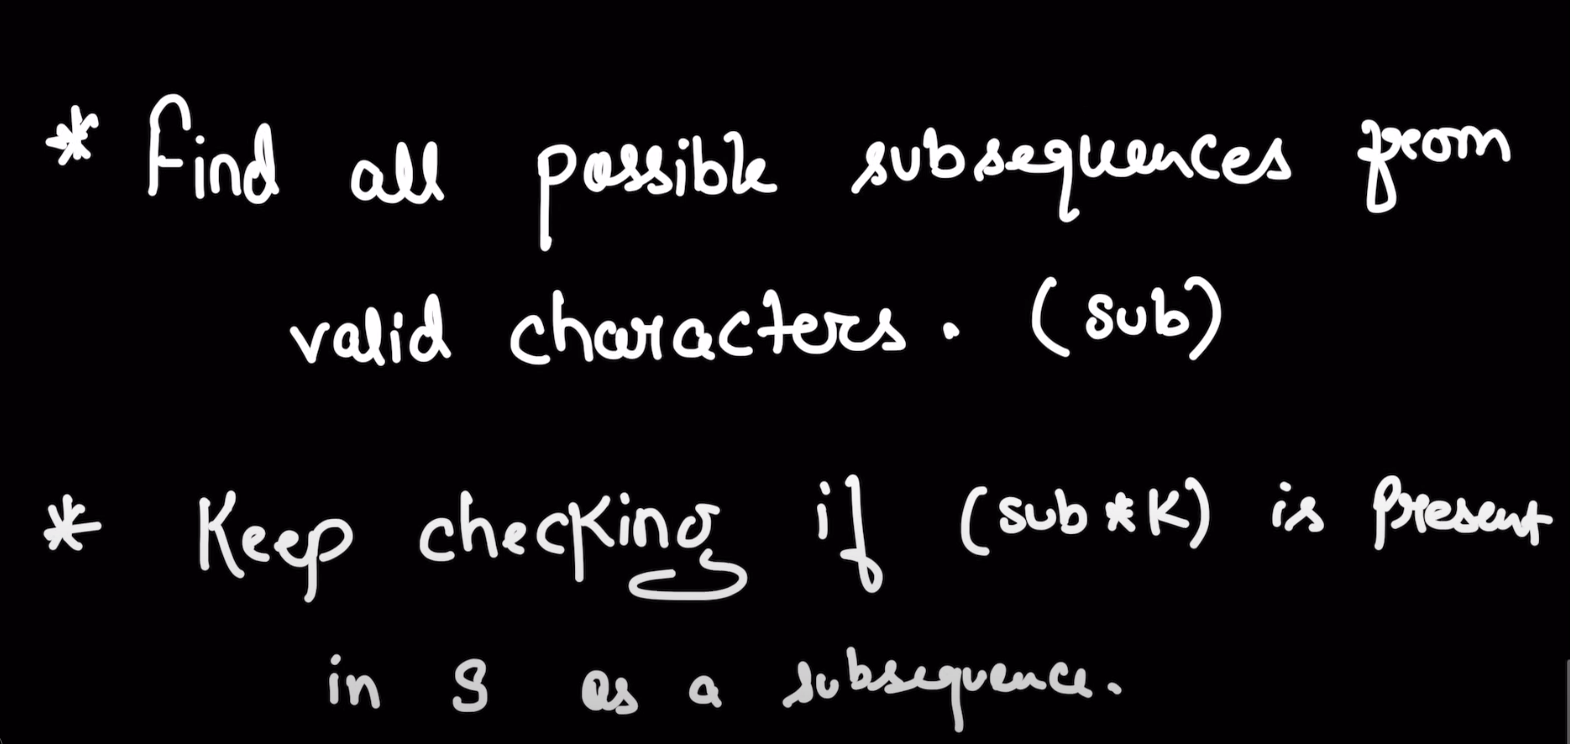 * Find all possible subsequences from
valid characters. (sub)
* Keep checking if (sub * K) is present
in S as a subsequence.